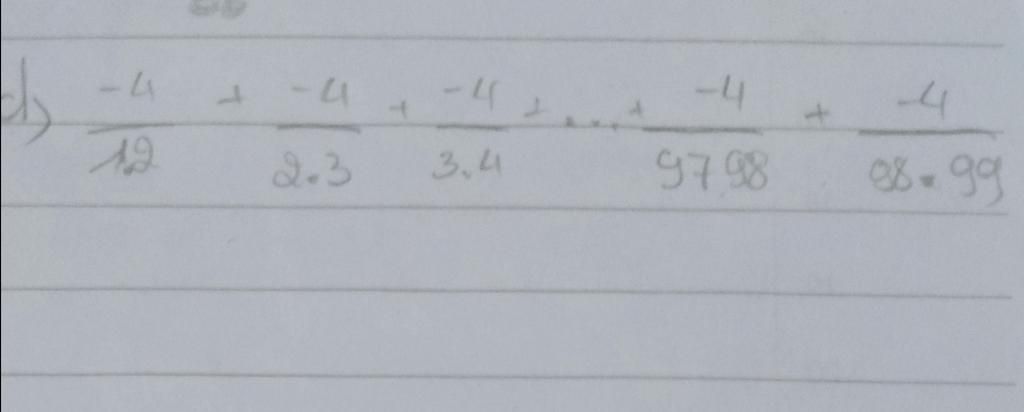 d) -4/1.2 + -4/2.3 + -4/3.4 + ... + -4/97.98 + -4/98.99